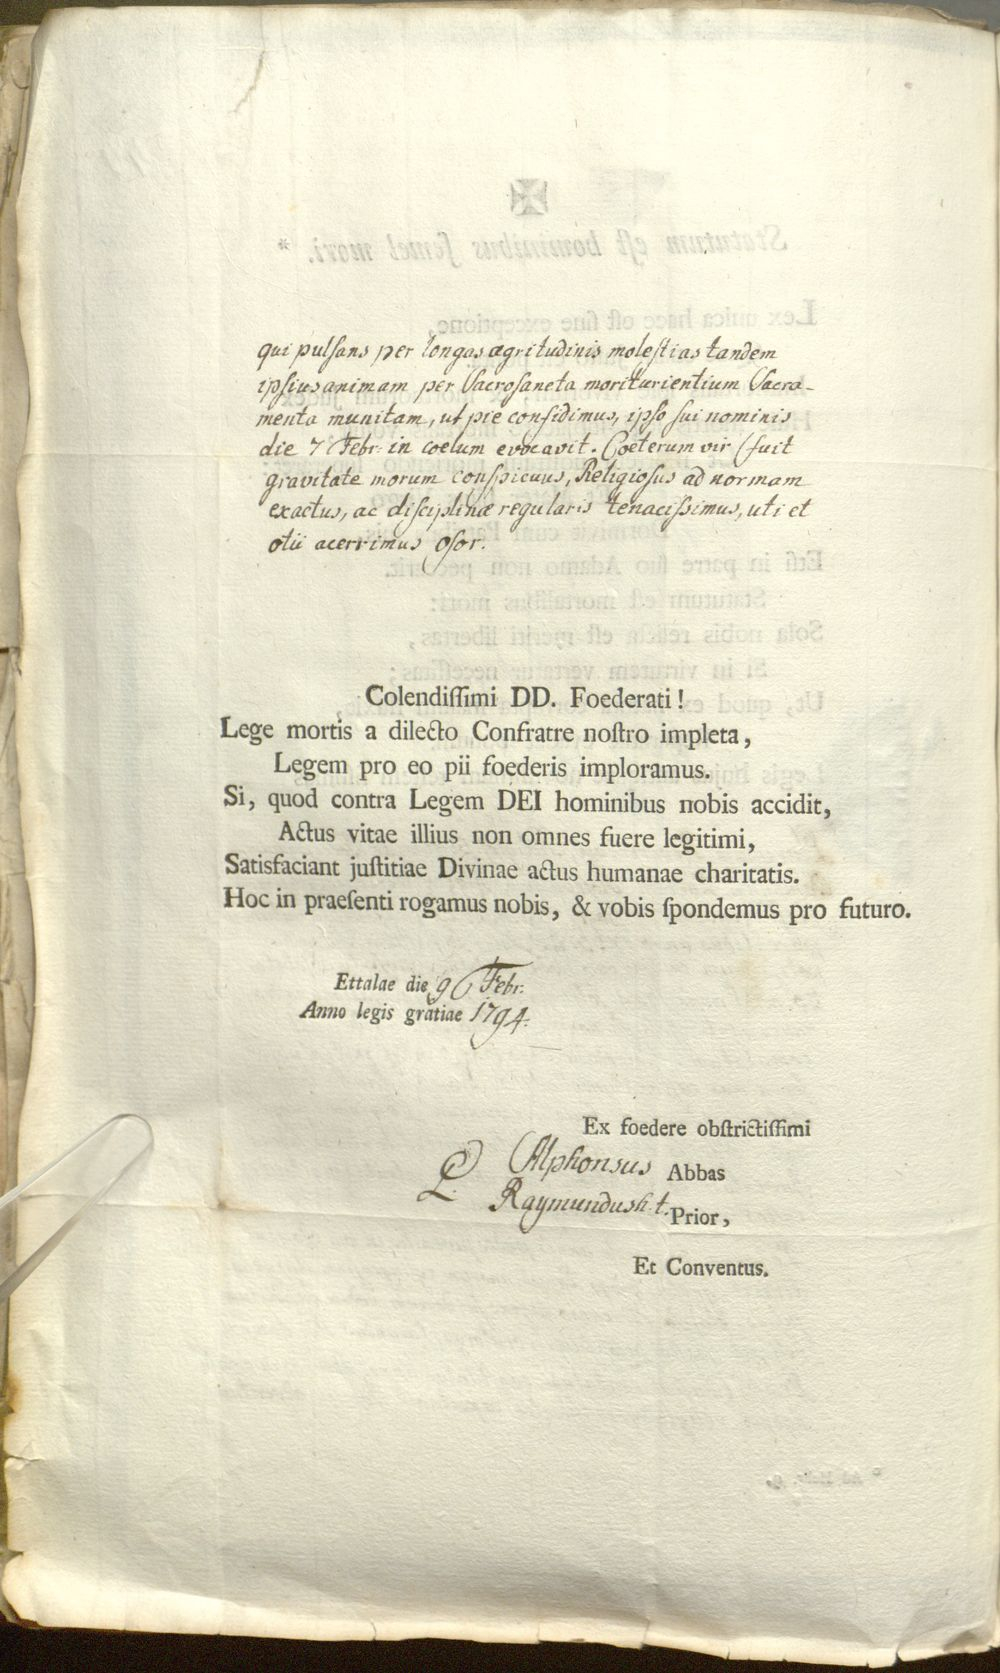 qui pulsans per longas ægritudinis molestias tandem
ipsius animam per Sacrosancta moriturientium Sacra-
menta munitam, ut pie confidimus, ipso sui nominis
die 7 Febr. in coelum evocavit. Coeterum vir fuit
gravitate morum conspicuus, Religiosus ad normam
exactus, ac disciplinæ regularis tenacissimus, uti et
otii acerrimus osor.
Colendiſſimi DD. Foederati!
Lege mortis a dilecto Confratre noſtro impleta,
Legem pro eo pii foederis imploramus.
Si, quod contra Legem DEI hominibus nobis accidit,
Actus vitae illius non omnes fuere legitimi,
Satisfaciant juſtitiae Divinae actus humanae charitatis.
Hoc in praeſenti rogamus nobis, & vobis ſpondemus pro futuro.
Ettalae die 9 Febr.
Anno legis gratiae 1794.
Ex foedere obſtrictiſſimi
Alphonsus Abbas
Raymundus h. t. Prior,
Et Conventus.